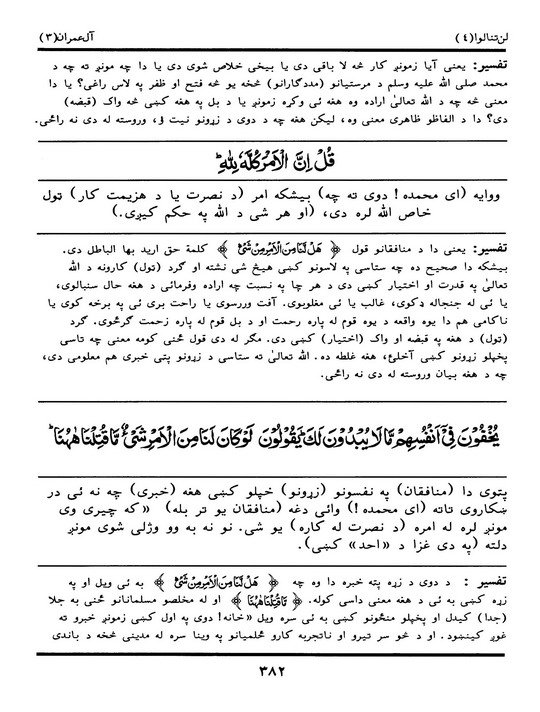 لن تنالوا (٤) آل عمران (٣)
تفسیر: یعنی آیا زمونږ کار څه لا باقی دی یا بیخی خلاص شوی دی یا دا چه مونږ ته چه د
محمد صلی الله علیه وسلم د مرستیانو (مددګارانو) څخه یو څه فتح او ظفر په لاس راغی؟ یا دا
معنی څه چه د الله تعالیٰ اراده وه هغه ئی وکړه زمونږ یا د بل په هغه کښی څه واک (قبضه)
دی؟ دا د الفاظو ظاهری معنی وه، لیکن هغه چه د دوی د زړونو نیت ؤ، وروسته له دی نه راځی.
قُلْ اِنَّ الْاَمْرَ كُلَّهٗ لِلّٰهِ ؕ
ووایه (ای محمده! دوی ته چه) بیشکه امر (د نصرت یا د هزیمت کار) ټول
خاص الله لره دی، (او هر شی د الله په حکم کیږی.)
تفسیر: یعنی دا د منافقانو قول ﴿ هَلْ لَّنَا مِنَ الْاَمْرِ مِنْ شَیْءٍ ﴾ کلمة حق ارید بها الباطل دی.
بیشکه دا صحیح ده چه ستاسی په لاسونو کښی هیڅ شی نشته او ګرد (ټول) کارونه د الله
تعالیٰ په قدرت او اختیار کښی دی د هر چا په نسبت چه اراده وفرمائی د هغه حال سنبالوی،
یا ئی له جنجاله ډکوی، غالب یا ئی مغلوبوی. آفت وررسوی یا راحت بری ئی په برخه کوی یا
ناکامی هم دا یوه واقعه د یوه قوم له پاره رحمت او د بل قوم له پاره زحمت ګرځوی. ګرد
(ټول) د هغه په قبضه او واک (اختیار) کښی دی. مګر له دی قول ځنی کومه معنی چه تاسی
پخپلو زړونو کښی آخلئ، هغه غلطه ده. الله تعالیٰ ته ستاسی د زړونو پتی خبری هم معلومی دی،
چه د هغه بیان وروسته له دی نه راځی.
یُخْفُوْنَ فِیْۤ اَنْفُسِهِمْ مَّا لَا یُبْدُوْنَ لَكَ ؕ یَقُوْلُوْنَ لَوْ كَانَ لَنَا مِنَ الْاَمْرِ شَیْءٌ مَّا قُتِلْنَا هٰهُنَا ؕ
پټوی دا (منافقان) په نفسونو (زړونو) خپلو کښی هغه (خبری) چه نه ئی در
ښکاروی تاته (ای محمده!) وائی دغه (منافقان یو تر بله) «که چیری وی
مونږ لره له امره (د نصرت له کاره) یو شی. نو نه به وو وژلی شوی مونږ
دلته (په دی غزا د «احد» کښی).
تفسیر : د دوی د زړه پټه خبره دا وه چه ﴿ هَلْ لَّنَا مِنَ الْاَمْرِ مِنْ شَیْءٍ ﴾ به ئی ویل او په
زړه کښی به ئی د هغه معنی داسی کوله. ﴿ مَّا قُتِلْنَا هٰهُنَا ﴾ او له مخلصو مسلمانانو ځنی به جلا
(جدا) کیدل او پخپلو منځونو کښی به ئی سره ویل «خانه! دوی په اول کښی زمونږ خبرو ته
غوږ کینښود. او د څو سر تیرو او ناتجربه کارو ځلمیانو په وینا سره له مدینی څخه د باندی
٣٨٢